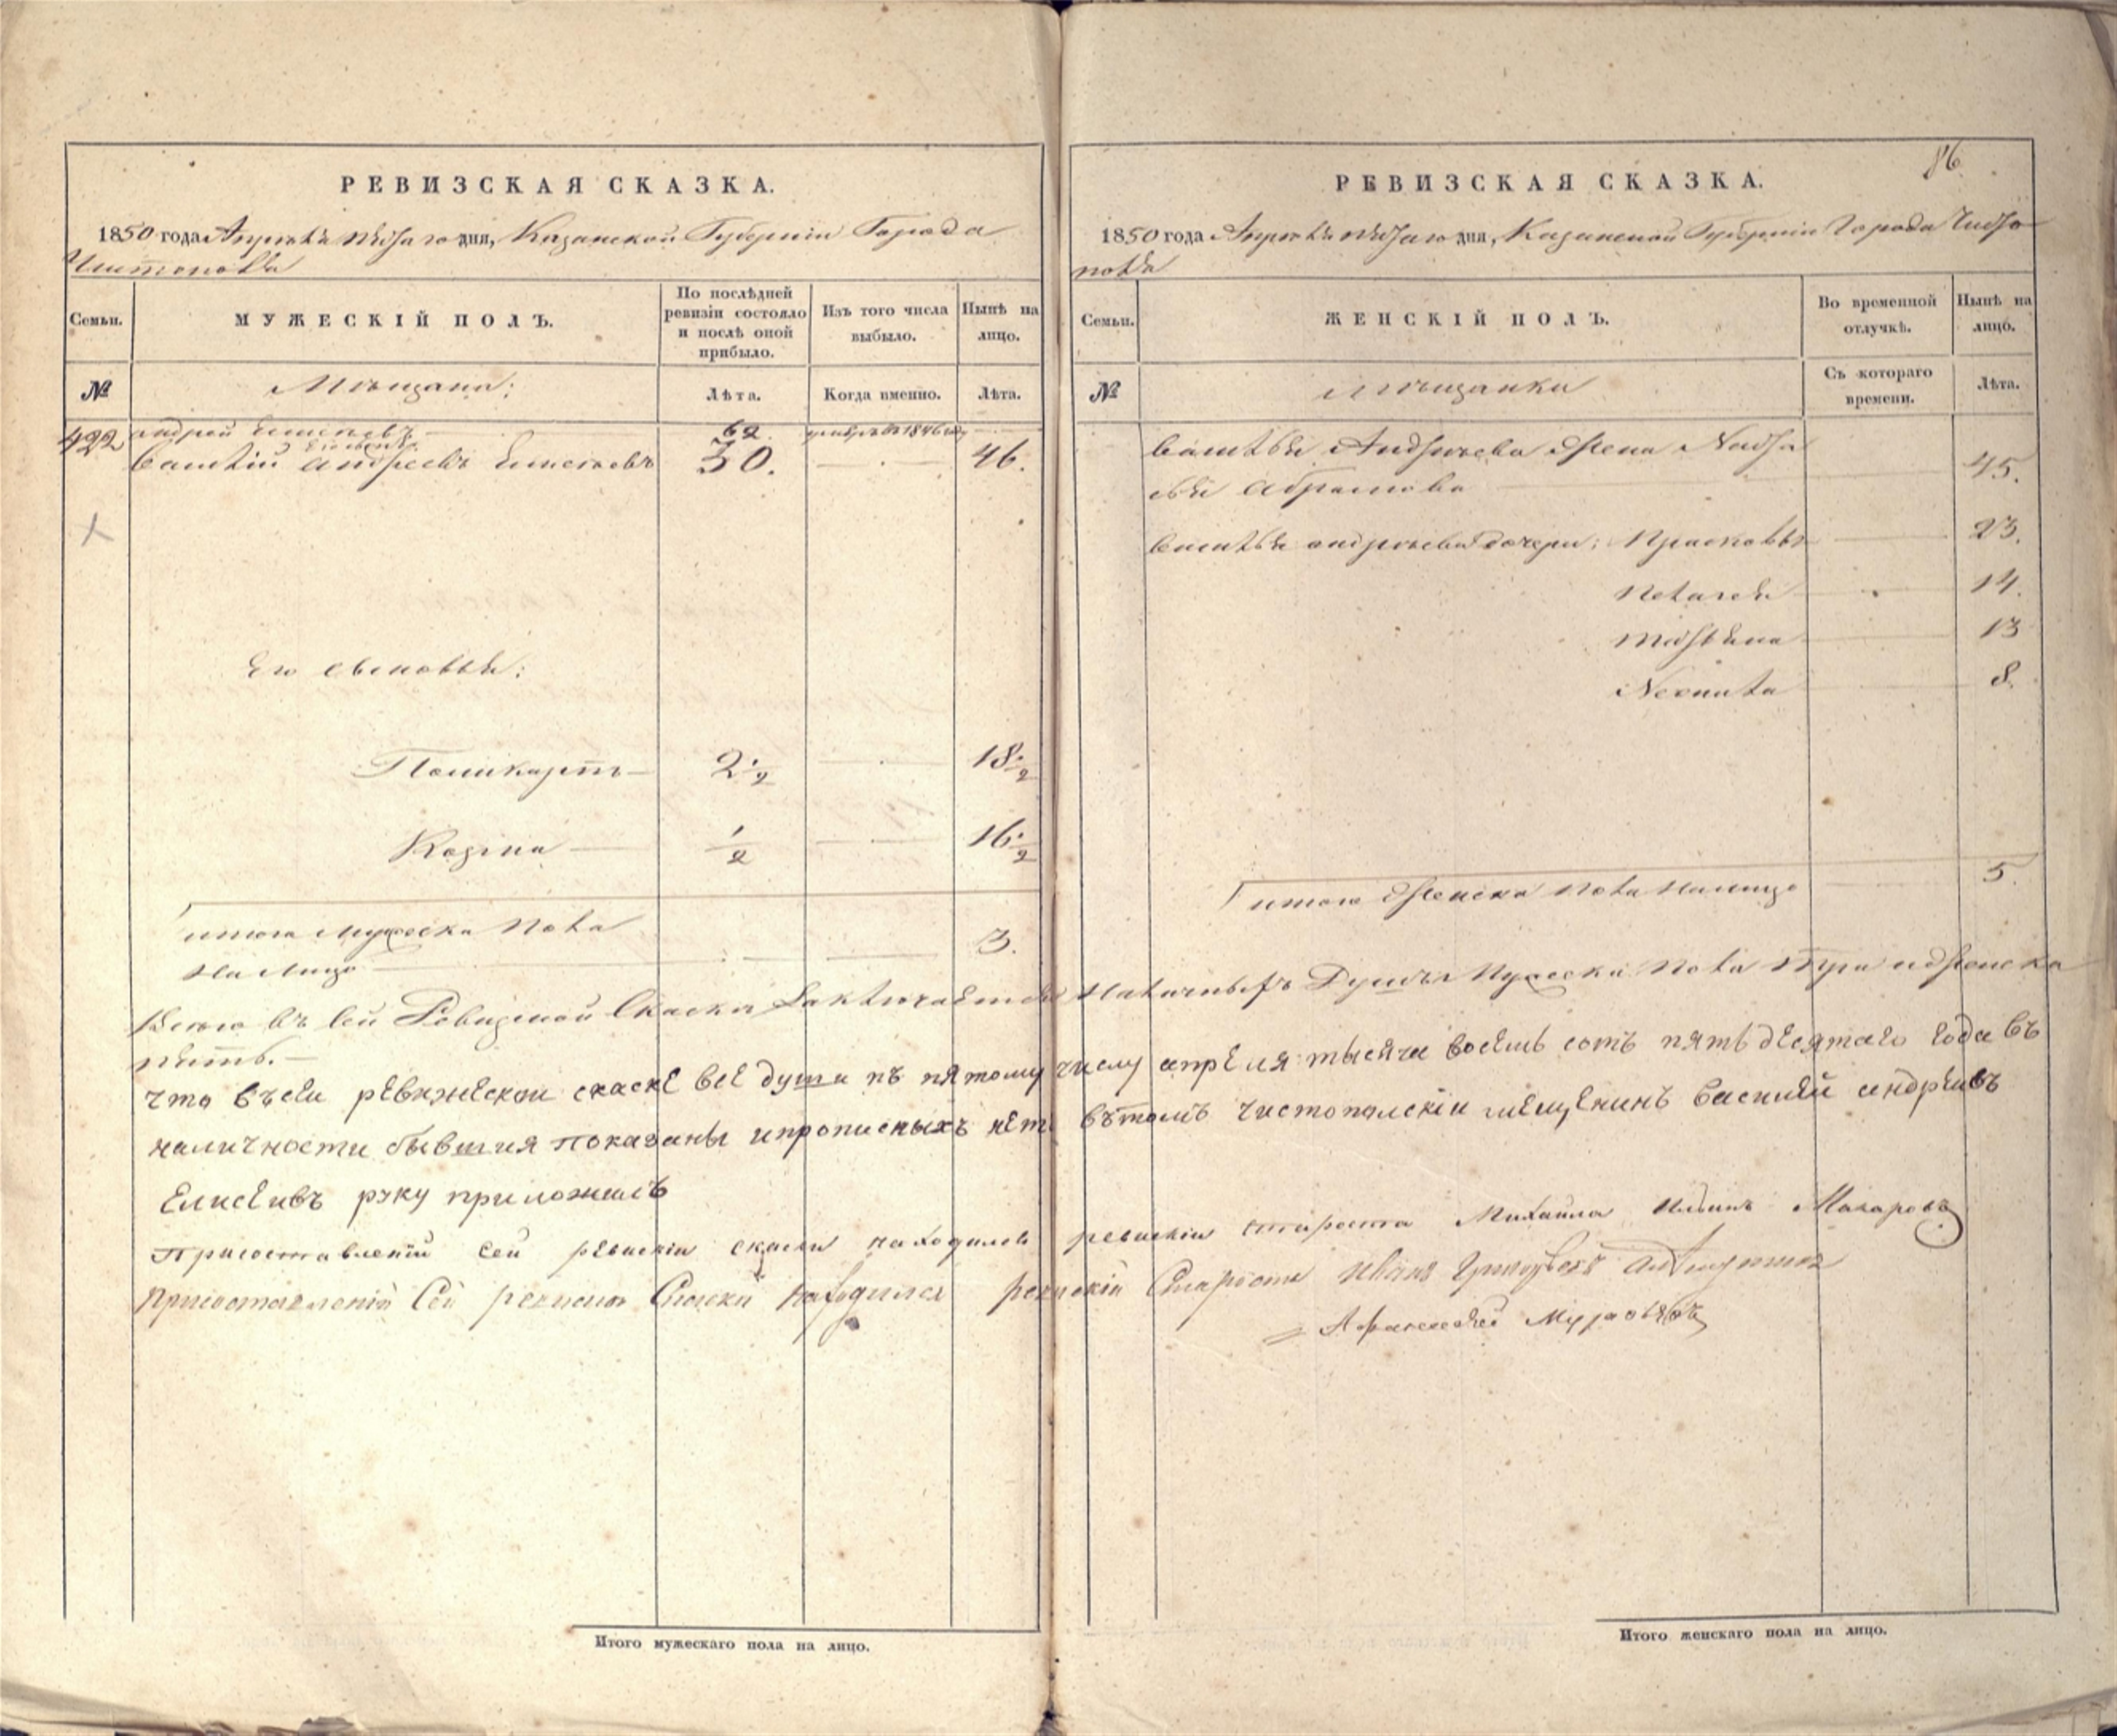 РЕВИЗСКАЯ СКАЗКА.
1850 года Апрѣля пятаго дня, Казанской Губерніи Города
Чистополя
Семьи.
МУЖЕСКІЙ ПОЛЪ.
По послѣдней ревизіи состояло и послѣ оной прибыло.
Изъ того числа выбыло.
Нынѣ на лицо.
№
Мѣщани:
Лѣта.
Когда именно.
Лѣта.
422 андрей Елисеевъ 62 умеръ въ 1846 году
Василій Андреевъ Елисеевъ 30. 46.
Его сыновья:
Поликарпъ 2 1/2 18 1/2
Козма 1/2 16 1/2
итого мужеска пола
на лицо 3.
РЕВИЗСКАЯ СКАЗКА.
86.
1850 года Апрѣля пятаго дня, Казанской Губерніи Города Чисто
поля
Семьи.
ЖЕНСКІЙ ПОЛЪ.
Во временной отлучкѣ.
Нынѣ на лицо.
№
Мѣщанки
Съ котораго времени.
Лѣта.
Василья Андрѣева жена
Абрамова 45.
Василья андрѣева дочери: Прасковья 23.
Пелагея 14.
Матрена 13
8.
итого женска пола налицо 5.
Всего въ сей Ревизской Скаски Заключается наличныхъ Душъ мужеска пола три и женска
пять.
что въсеи рѣвижескои скаскѣ всѣ души пъ пятому числу апрѣля тысяча восѣмь сотъ пятьдѣсятаго года въ
наличности бывшия показаны ипрописныхъ нѣтъ вътомъ чистополскіи мѣщенинъ василѣй андрѣивъ
Елисѣивъ руку приложилъ
Присоставленіи сей рѣвискіи скаски находился ревискіи староста Михаила Ильинъ Макаровъ
присоставленіи Сей Скаски находился Староста Иванъ